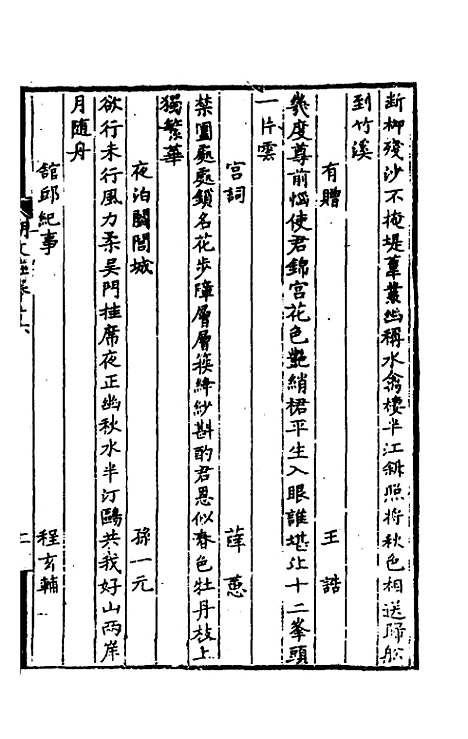 斷柳殘沙不掩堤葦叢幽稱水禽棲半江斜照將秋色相送歸船
到竹溪
有贈 王誥
幾度尊前惱使君錦宮花色艷綃裙平生入眼誰堪比十二峯頭
一片雲
宮詞 薛蕙
禁園處處鎖名花步障層層簇絳紗斟酌君恩似春色牡丹枝上
獨繁華
夜泊閶閭城 孫一元
欲行未行風力柔吳門挂席夜正幽秋水半汀鷗共我好山兩岸
月隨舟
舘邱紀事 程玄輔